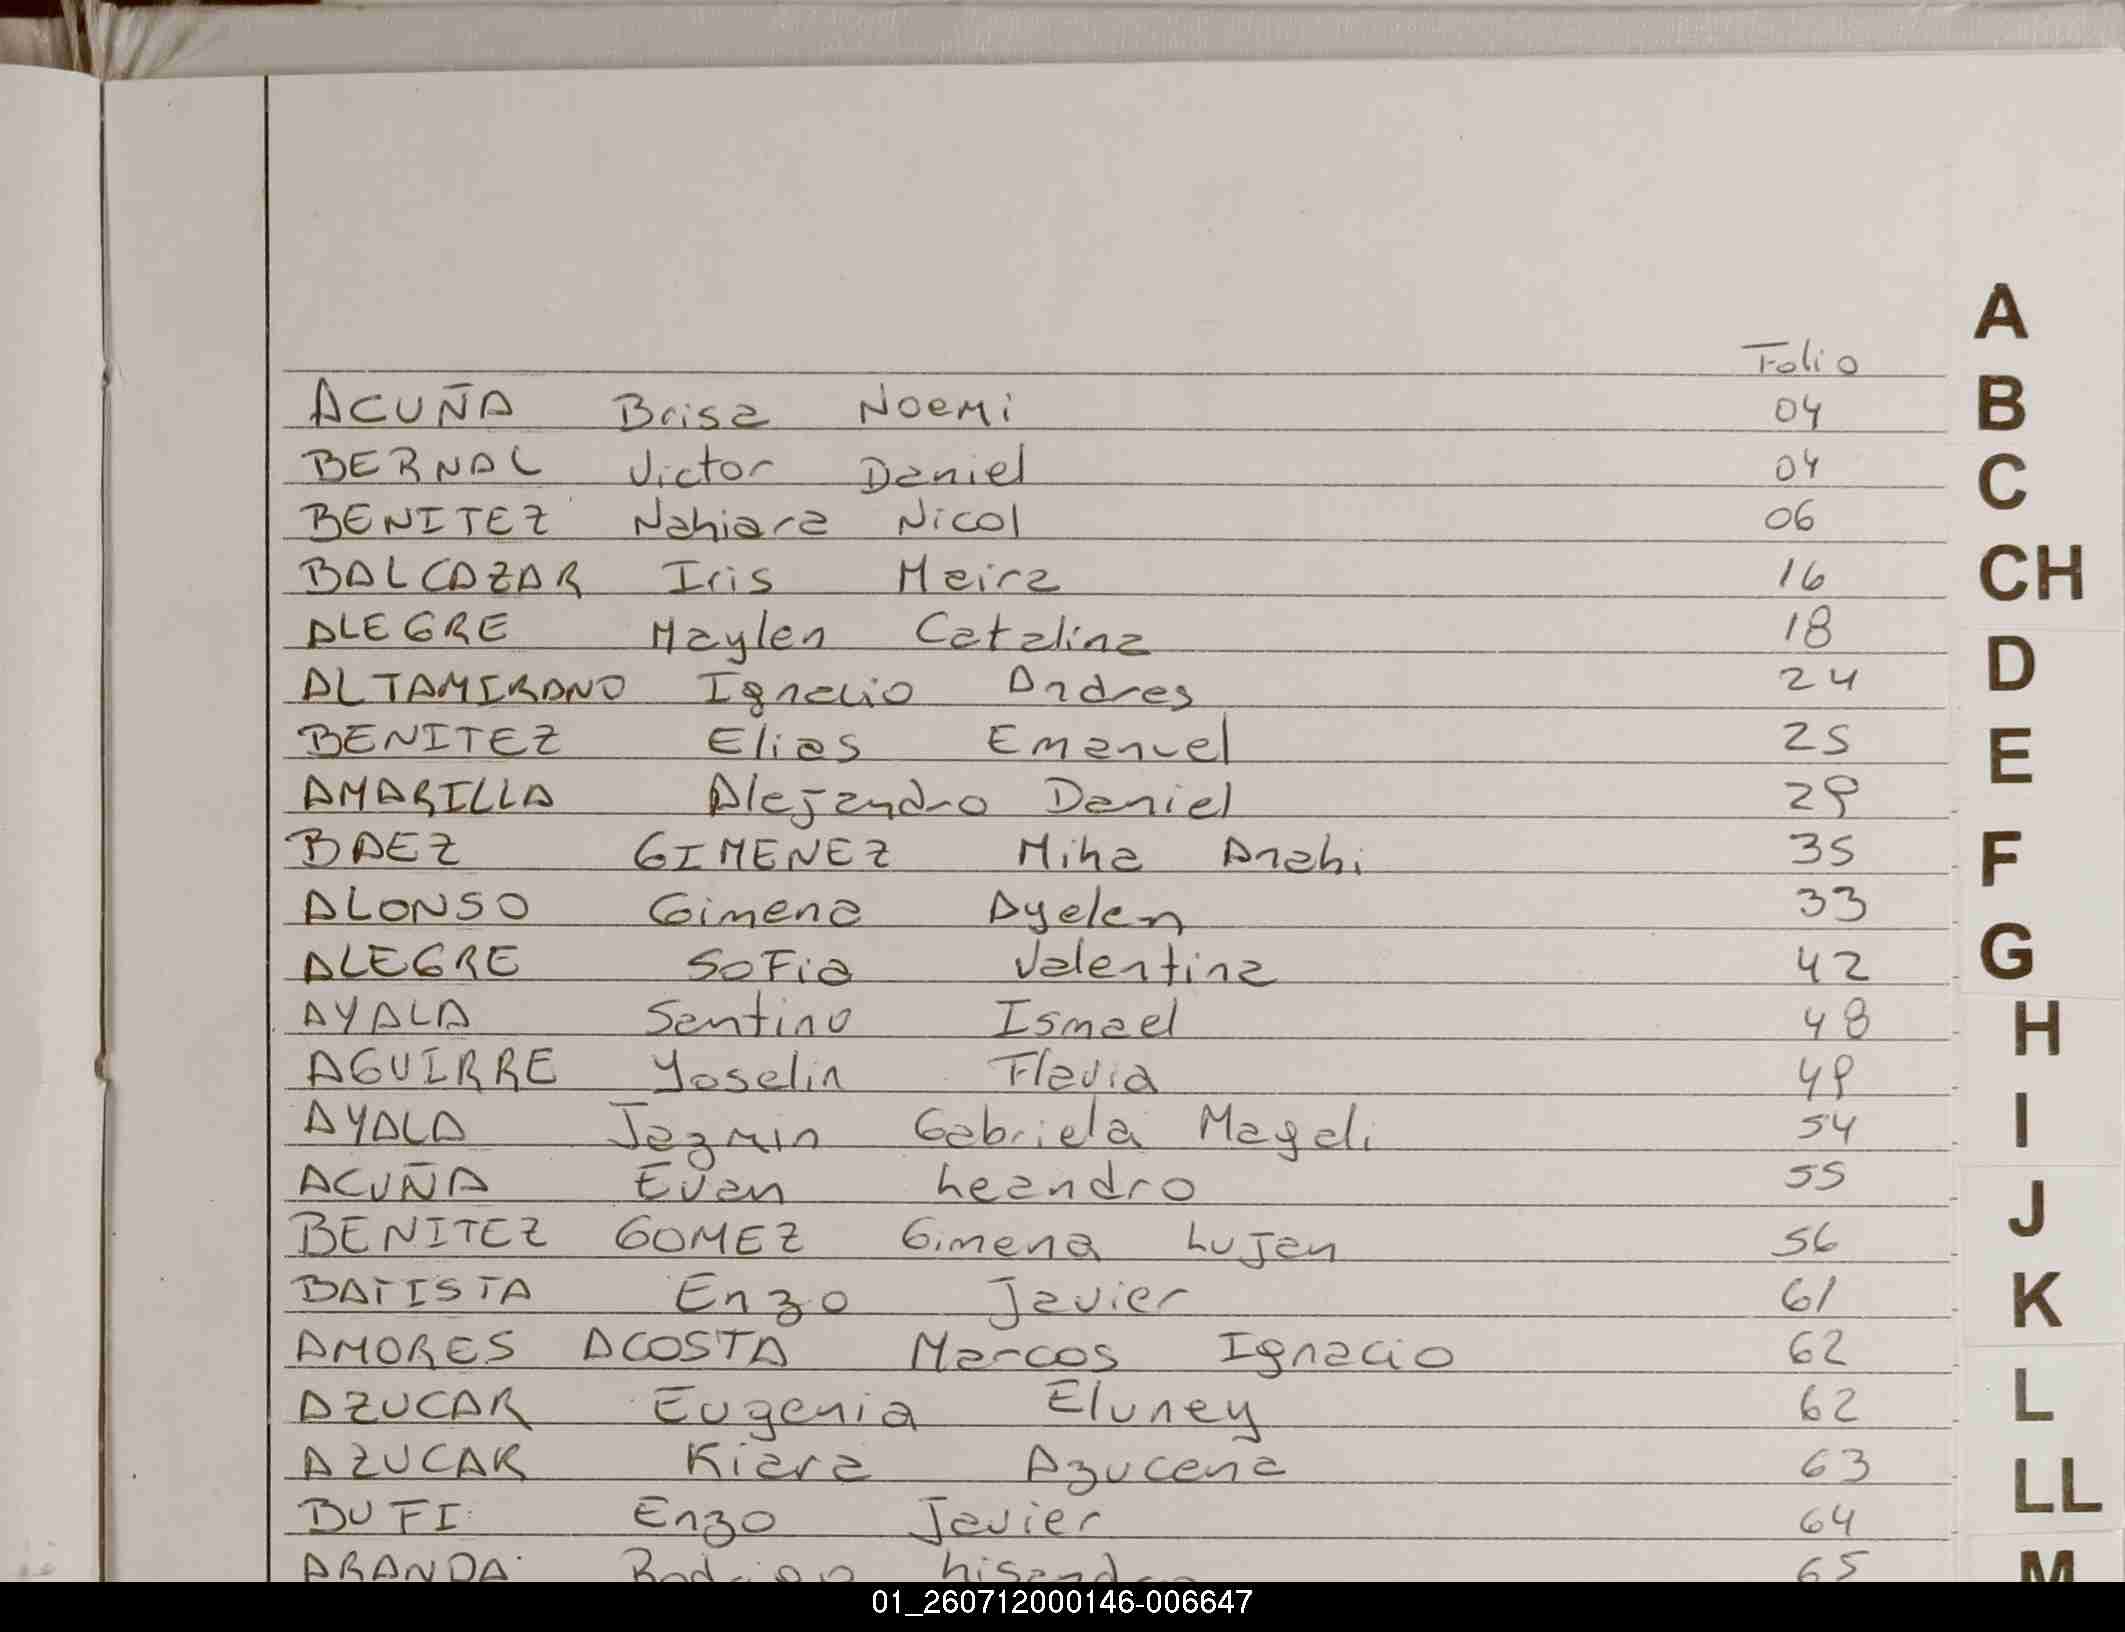 Folio
ACUÑA Brisa Noemi 04
BERNAL Victor Daniel 04
BENITEZ Nahiara Nicol 06
BALCAZAR Iris Meira 16
ALEGRE Maylen Catalina 18
ALTAMIRANO Ignacio Andres 24
BENITEZ Elias Emanuel 25
AMARILLA Alejandro Daniel 29
BAEZ GIMENEZ Mina Anahi 35
ALONSO Gimena Ayelen 33
ALEGRE Sofia Valentina 42
AYALA Santino Ismael 48
AGUIRRE Yoselin Flavia 49
AYALA Jazmin Gabriela Magali 54
ACUÑA Evan Leandro 55
BENITEZ GOMEZ Gimena Lujan 56
BATISTA Enzo Javier 61
AMORES ACOSTA Marcos Ignacio 62
AZUCAR Eugenia Eluney 62
AZUCAR Kiara Azucena 63
BUFI Enzo Javier 64
ARANDA Rodrigo Lisandro 65
A
B
C
CH
D
E
F
G
H
I
J
K
L
LL
M
01_260712000146-006647